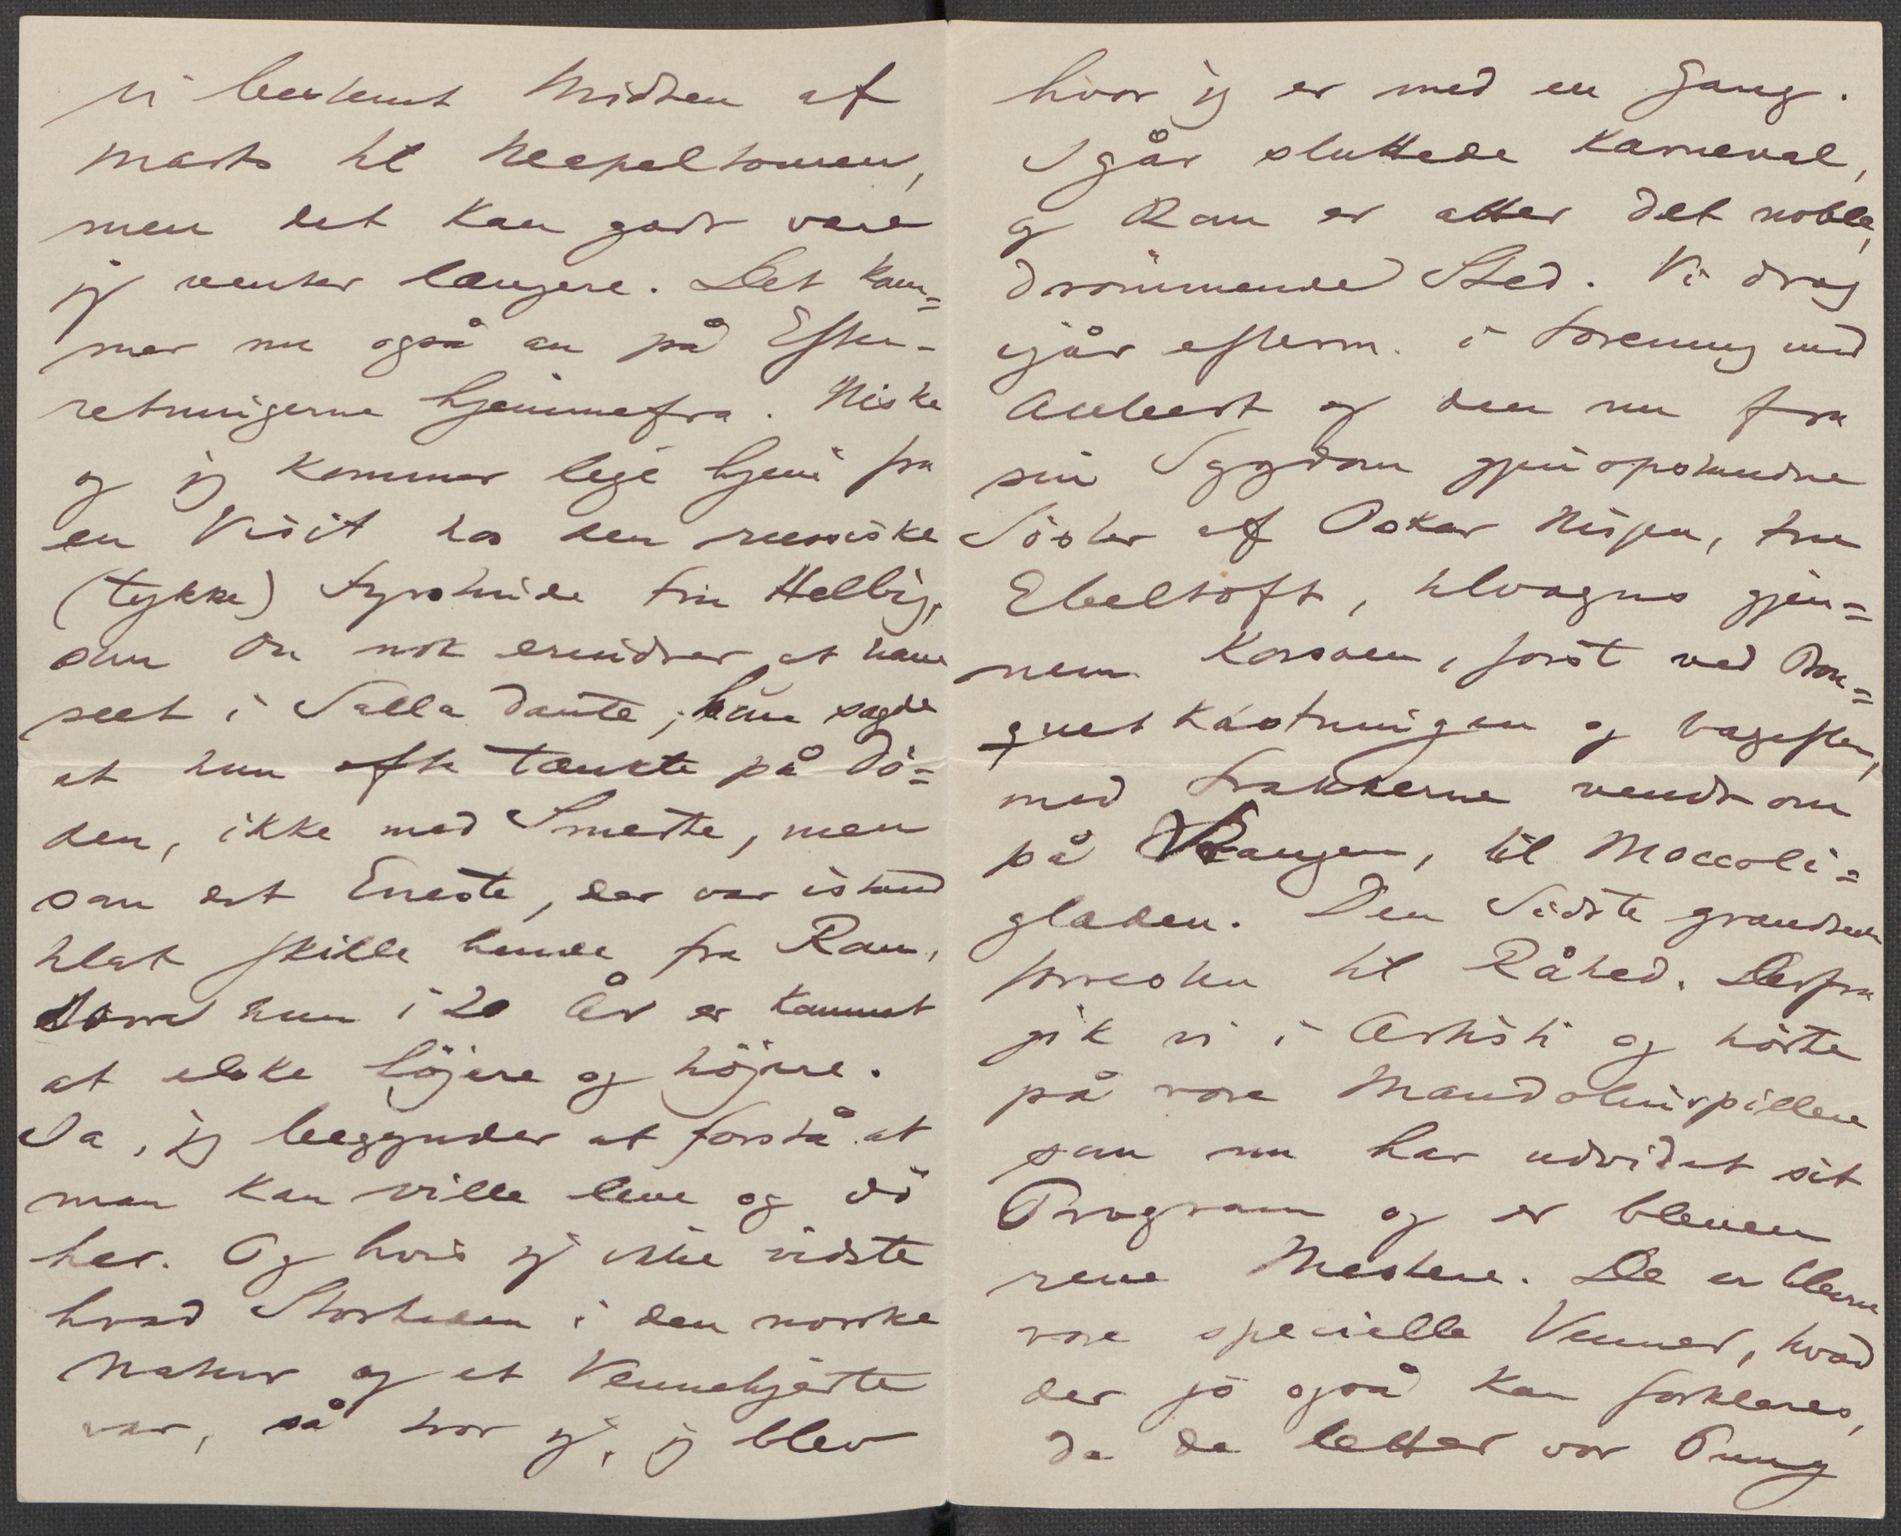 vi bestemt Midten af
Marts til Neapelturen,
men det kan godt være
jeg venter længere. Det kom=
mer nu også an på Efter-
retningerne hjemmefra. Niska
og jeg kommer lige hjem fra
en Visit hos den russiske
(tykke) Fyrstinde Fru Helbig,
som du nok erindrer at have
seet i Salla Dante; hun sagde
at hun ofte tænkte på Dö=
den, ikke med Smerte, men
som det Eneste, der var istand
til at skille hende fra Rom,
som hun i 20 År er kommet
at elske höjere og höjere.
Ja, jeg begynder at forstå at
man kan ville leve og dö
her. Og hvis jeg ikke vidste
hvad Storheden i den norske
Natur og et Vennehjerte
var, så tror jeg, jeg blev
hvor jeg er med en Gang.
Igår sluttede Karneval,
og Rom er atter det noble,
drömmende Sted. Vi drog
igår efterm. i Forening med
Aubert og den nu fra
sin Sygdom gjenopstandne
Söster af Oskar Nissen, Fru
Ebeltoft, tilvogns gjen=
nem Korsoen, först ved Bou=
quetkastningen og bagefter,
med Frakkerne vendt om
på Vrangen, til Moccoli=
glæden. Den Sidste grændsede
forresten til Råhed. Derfra
gik vi i Artisti og hörte
på vore Mandolinspillere
som nu har udvidet sit
Program og er blevne
rene Mestere. De er blevne
vore specielle Venner, hvad
der jo også kan forklares,
da de letter vor Pung